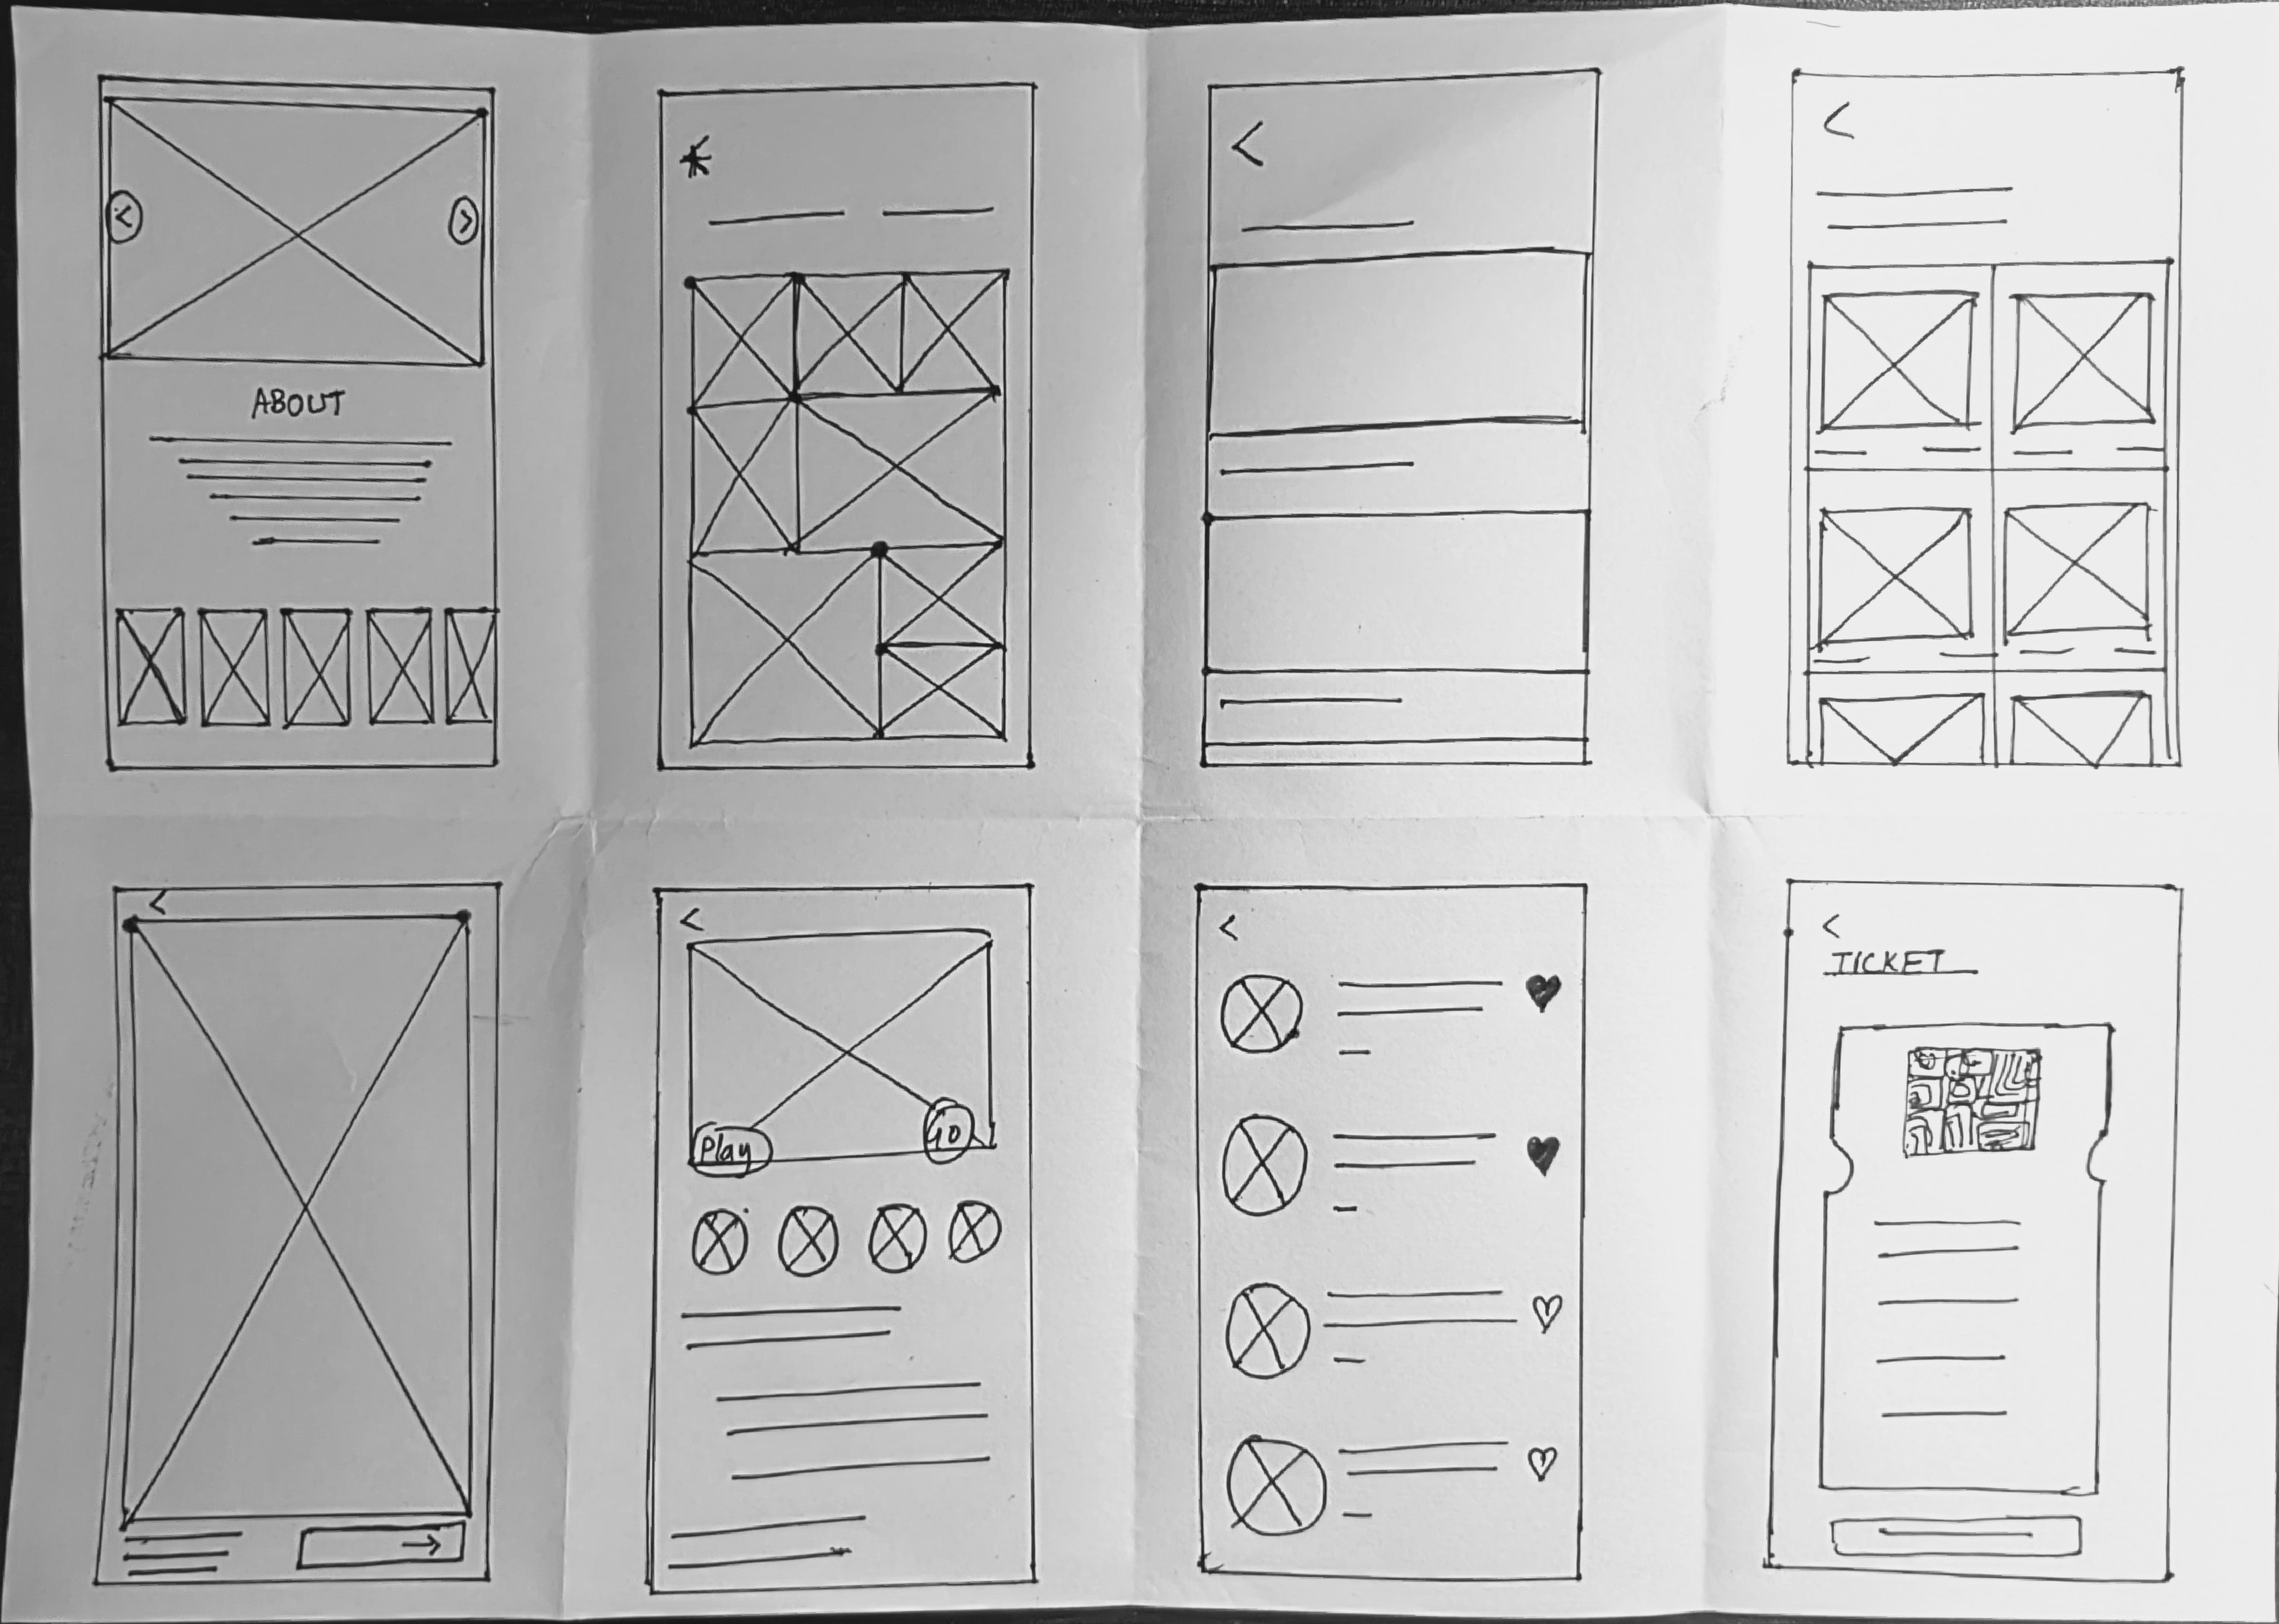 ABOUT
Play
GO
TICKET